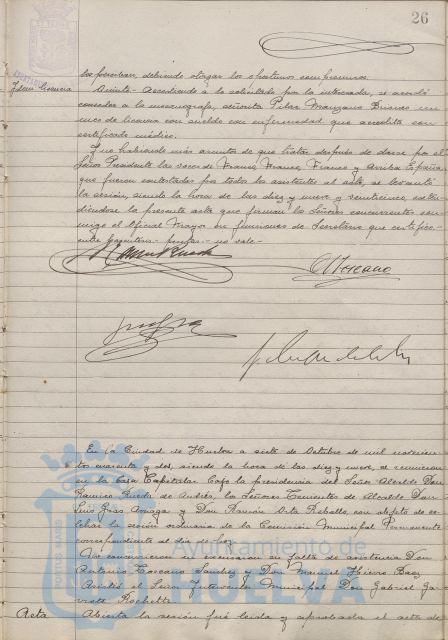 26
los posibran, debiendo otorgar los oportunos compromisos.
Idem licencia
Quinto - Accediendo á lo solicitado por la interesada, se acordó
conceder a la mecanografa, señorita Pilar Manzano Briones un
mes de licencia con sueldo con enfermedad que acredita con
certificado médico.
Y no habiendo más asuntos de que tratar después de darse por el
Señor Presidente las voces de Franco, Franco, Franco y Arriba España,
que fueron contestadas por todos los asistentes al acto, se levantó
la sesión, siendo la hora de las diez y nueve y veinticinco, exten-
diéndose la presente acta que firman los Señores concurrentes con-
migo el Oficial Mayor en funciones de Secretario que certifico.-
entre no vale-
Toscano
En la Ciudad de Huelva a siete de Octubre de mil novecien-
tos cuarenta y dos, siendo la hora de las diez y nueve, se reunieron
en la Casa Capitular bajo la presidencia del Señor Alcalde Don
Rueda de Andrés, los Señores Tenientes de Alcalde Don
Luis Gras Arriaga y Don Ramón Orta Rebollo, con objeto de ce-
lebrar la sesión ordinaria de la Comisión Municipal Permanente
correspondiente al día de hoy.
No concurrieron ni excusaron su falta de asistencia Don
Antonio Toscano Sanchez y Don Manuel Hierro Baez
Asistió el Señor Interventor Municipal Don Gabriel Ga-
Rochette.
Acta
Abierta la sesión fué leida y aprobada el acta de
Ayuntamiento de
HUELVA